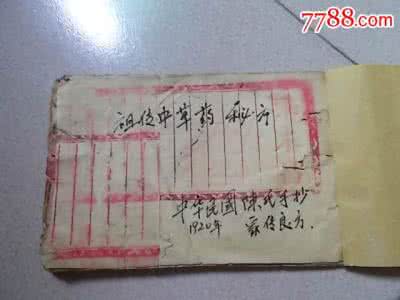 7788.com
祖传中草药 秘方
中华民國陳氏手抄
1920年 家传良方.